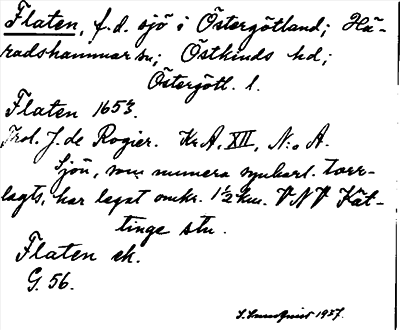 Flaten, f.d. sjö i Östergötland; Hä-
radshammar sn; Östkinds hd;
Östergötl. l.
Flaten 1653.
Prol. J. de Rogier. Kr A, XII, N:o A.
Sjön, som numera synbarl. torr-
lagts, har legat omkr. 1½ km. VNV Kät-
tinge stn.
Flaten ek.
G. 56.
1937.